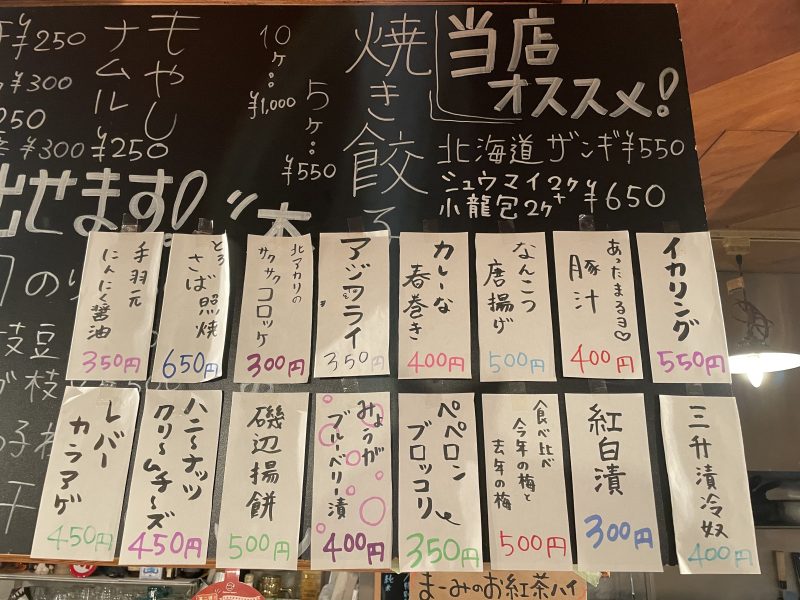 当店
オススメ!
北海道 ザンギ ¥550
シュウマイ2ケ+
小龍包2ケ
¥650
焼き餃子
5ケ:
¥550
10ケ:
¥1,000
もやし
ナムル
¥250
¥250
¥300
250
¥300
出せます!
イカリング
550円
あったまるヨ♡
豚汁
400円
なんこつ
唐揚げ
500円
カレーな
春巻き
400円
アジフライ
350円
北アカリの
サクサク
コロッケ
300円
とろ
さば照焼
650円
手羽元
にんにく醤油
350円
三升漬冷奴
400円
紅白漬
300円
食べ比べ
今年の梅と
去年の梅
500円
ペペロン
ブロッコリー
350円
みょうが
ブルーベリー漬
400円
磯辺揚餅
500円
ハニ〜ナッツ
クリ〜ムチ〜ズ
450円
レバー
カラアゲ
450円
まーみのお紅茶ハイ